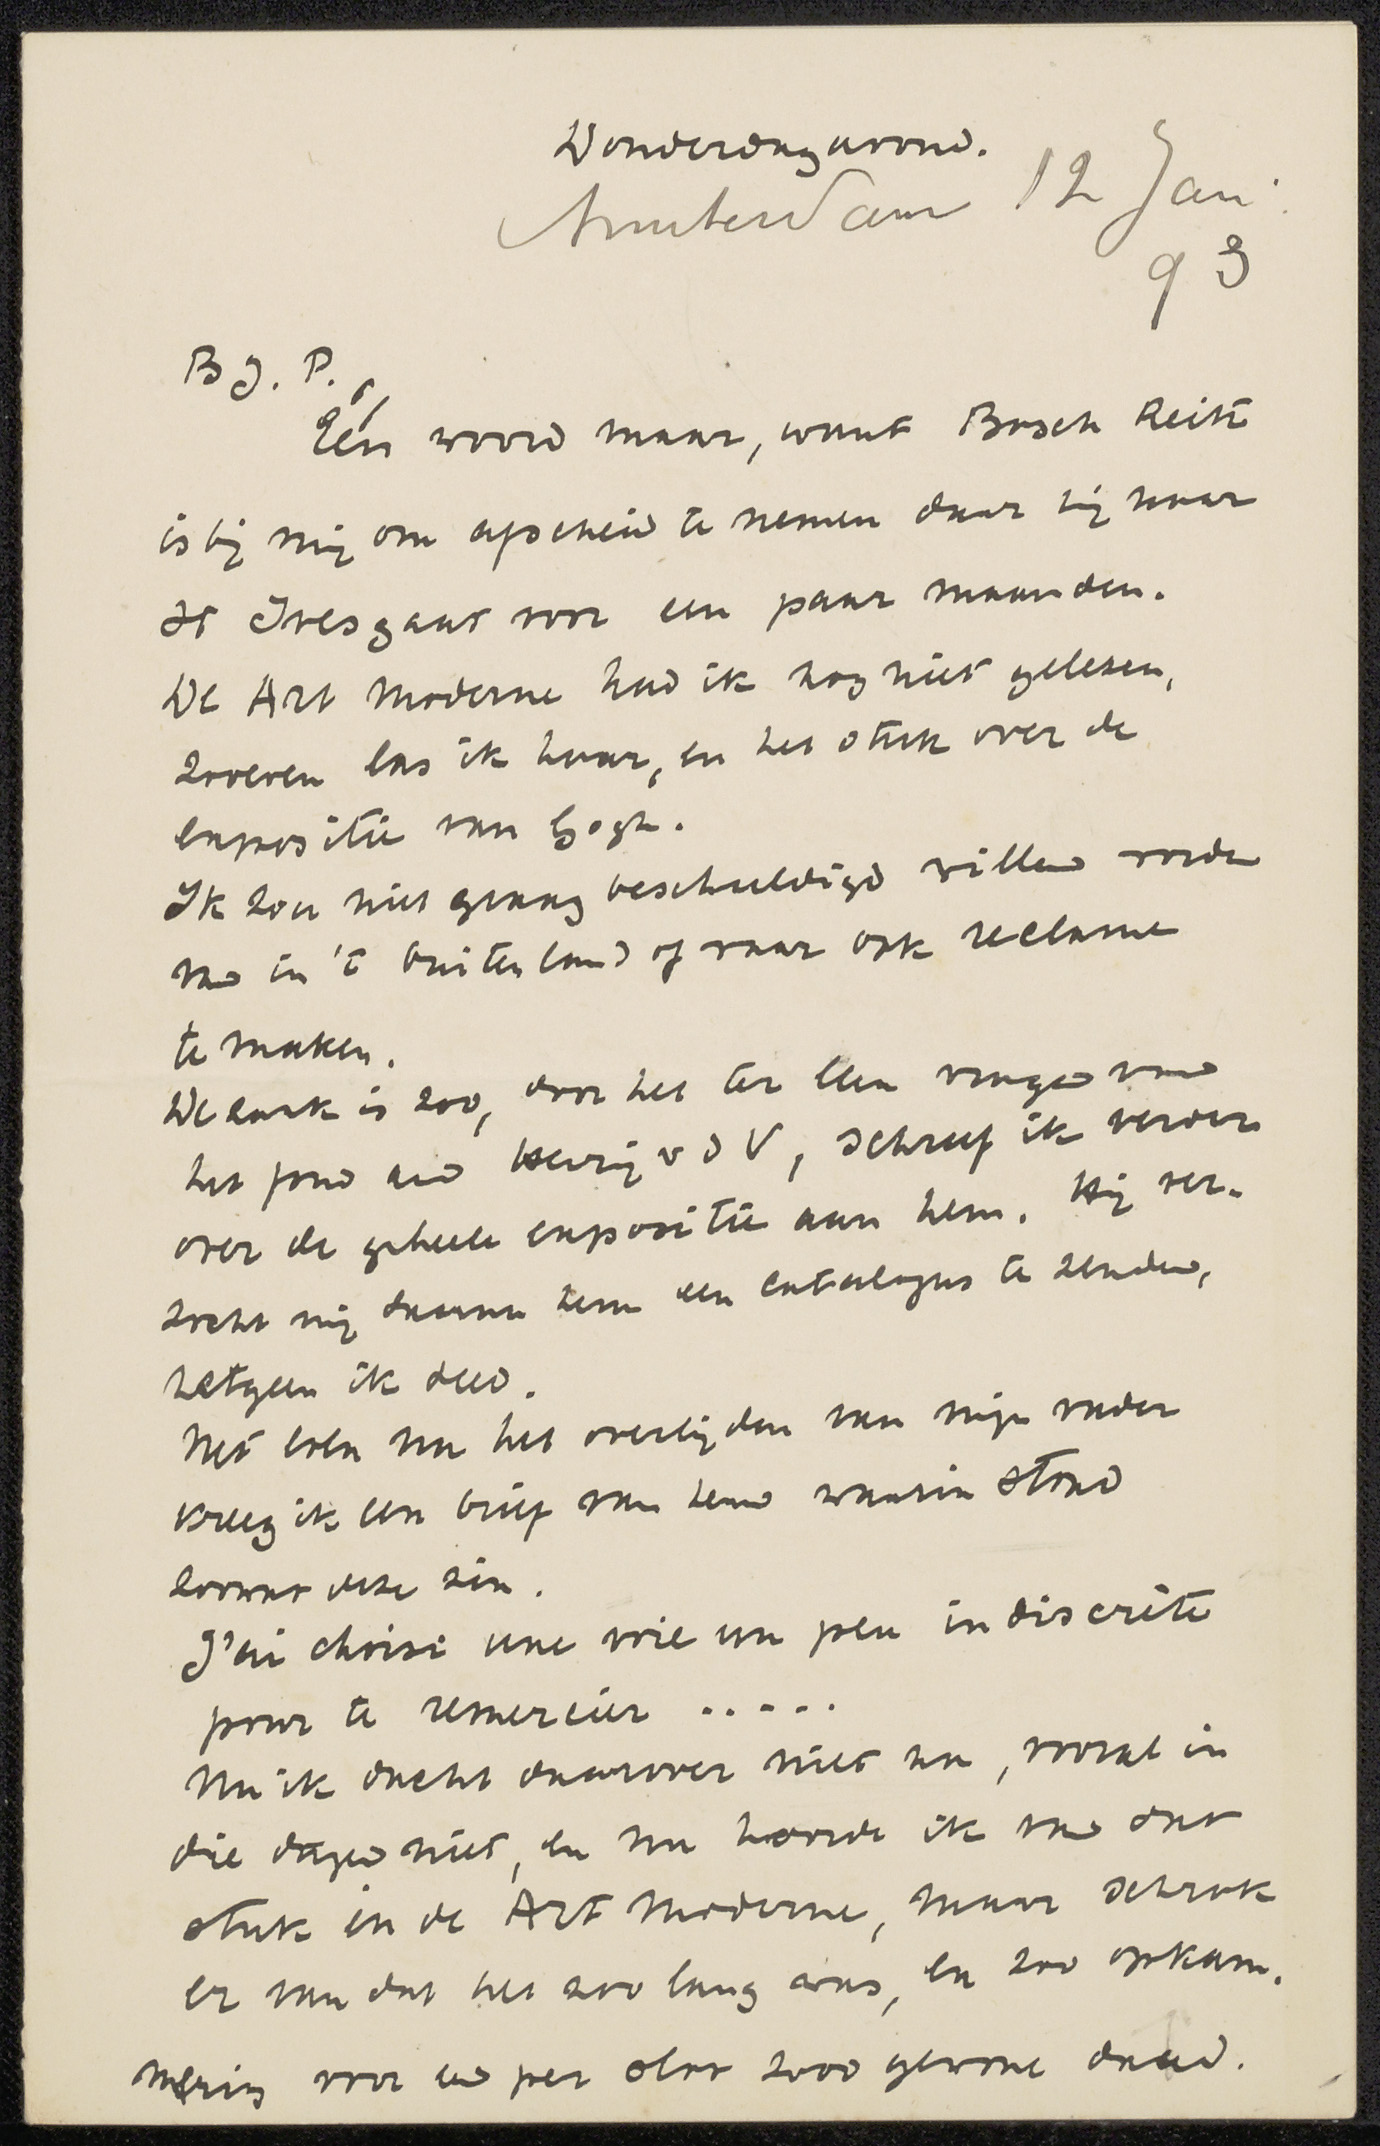 Donderdagavond.
Amsterdam 12 Jan.
93
B J. P.,
Eén woord maar, want Bosch Reitz
is bij mij om afscheid te nemen daar hij naar
St Ives gaat voor een paar maanden.
De Art Moderne had ik nog niet gelezen,
zooeven las ik haar, en het stuk over de
expositie van Gogh.
Ik zou niet graag beschuldigd willen worden
van in 't buitenland of waar ook reclame
te maken.
De zaak is zoo, door het ter leen vragen van
het portr. aan Henry v d V, schreef ik verder
over de geheele expositie aan hem. Hij ver-
zocht mij daarna hem een catalogus te zenden,
hetgeen ik deed.
Net even na het overlijden van mijn vader
kreeg ik een brief van hem waarin stond
zoowat deze zin.
J'ai choisi une voie un peu indiscrète
pour te remercier .....
Nu ik dacht daarover niet na, vooral in
die dagen niet, en nu hoorde ik van dat
stuk in de Art Moderne, maar schrok
er van dat het zoo lang was, en zoo opkam.
voor en per slot zoo gewone daad.